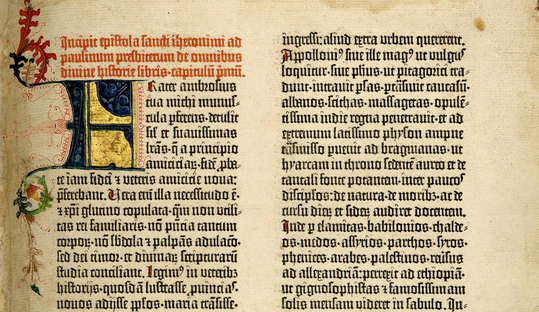 Incipit epistola sancti iheronimi ad
paulinum presbiterum de omnibus
divine historie libris. capitulū pͥmū.
Frater ambrosius
tua michi munus-
cula ꝑferens. detulit
sil' et suavissimas
lrās. q̄ a principio
amiciciaꝝ. fidē ꝓba-
te iam fidei et veteris amicicie nova:
ꝑferebant. Vera eni illa necessitudo ē.
et xpī glutino copulata. qm̄ non utili-
tas rei familiaris. nō pn̄cia tantum
corpoꝝ. nō sbdola et palpās adulacō.
sed dei timor. et divinaꝝ scripturarū
studia conciliant. Legim⁹ in veterib⁹
historijs. quosdā lustrasse ꝓvincias.
novos adijsse ppl̄os. maria trāsisse.
ingressi: aliud extra urbem quererent.
Apolloni⁹ sive ille mag⁹ ut vulgus
loquitur. sive ph̄us. ut pitagorici tra-
dunt. intravit ꝑsas. ptrāsivit caucasū.
albanos. scithas. massagetas. opulē-
tissima indie regna penetravit. et ad
extremum latissimo physon ampne
trāsmisso ꝑvenit ad bragmanas. ut
hyarcam in throno sedentē aureo et de
tantali fonte potantem. inter paucos
discipl̄os. de natura. de moribz. ac de
cursu dieꝝ et sideꝝ audiret docentem.
Inde ꝑ elamitas. babilonios. chalde-
os. medos. assyrios. parthos. syros.
phenices. arabes. palestinos. reversus
ad allexandriā: perrexit ad ethiopiā.
ut gignosophistas et famosissimam
solis mensam videret in sabulo. In-